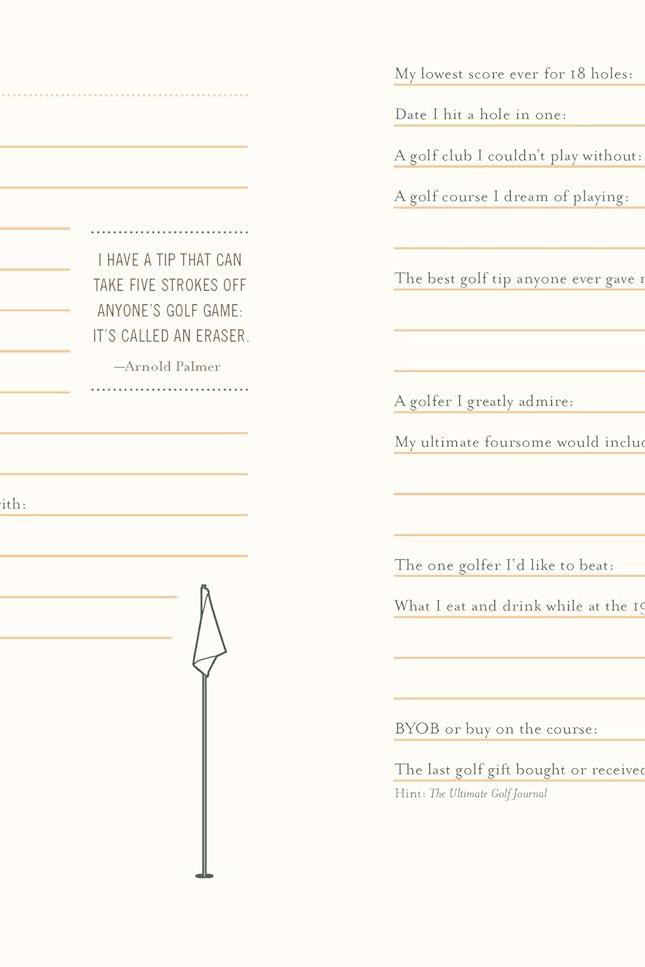 I HAVE A TIP THAT CAN
TAKE FIVE STROKES OFF
ANYONE'S GOLF GAME:
IT'S CALLED AN ERASER.
—Arnold Palmer
with:
My lowest score ever for 18 holes:
Date I hit a hole in one:
A golf club I couldn't play without:
A golf course I dream of playing:
The best golf tip anyone ever gave
A golfer I greatly admire:
My ultimate foursome would
The one golfer I'd like to beat:
What I eat and drink while at the
BYOB or buy on the course:
The last golf gift bought or received
Hint: The Ultimate Golf Journal